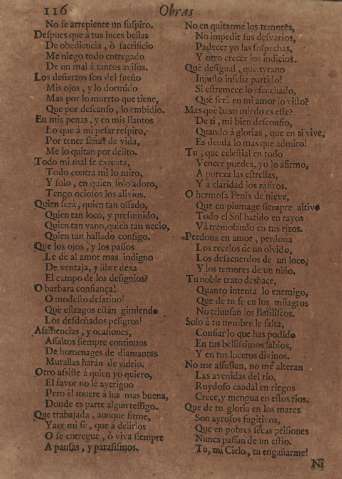 116 Obras
No se arrepiente un suspiro.
Despues que à tus luces bellas
De obediencia, ò sacrificio
Me niego todo entregado
De un mal à tantos
Los desiertos son del sueño
Mis ojos, y lo dormido
Mas por lo muerto que tiene,
Que por descanso, lo embidio.
En mis penas, y en mis llantos
Lo que à mi pesar respiro,
Por tener señas de vida,
Me lo quitan por delito.
Todo mi mal se
Todo contra mi lo miro,
Y solo, en quien me adoro,
Tengo ociosos los alivios.
Quien será, quien tan osado,
Quien tan loco, y presumido,
Quien tan vano, quien tan necio,
Quien tan hallado consigo.
Que los ojos, y los passos
Le dè al amor mas indigno
De ventaja, y libre dexa
El campo de los designios?
O barbara confiança!
O modesto desatino!
Que estragos están gimiendo
Los desdeñados peligros!
Assistencias, y ocasiones,
Assaltos siempre continuos
De homenages de diamantes
Murallas harán de vidrio.
Otro assiste à quien yo quiero,
El favor no le averiguo
Pero el muere à luz mas buena,
Donde es parte algun resfigo.
Que trabajada, aunque firme,
Yace mi fè, que à delirios
O se entregue, ò viva siempre
A pausas, y parasismos.
No en quitarme los temores,
No impedir sus desvarios,
Padecer yo las sospechas,
Y otro creer los indicios.
Què desigual, què tyrano
Injusto infeliz partido!
Si estremece lo escuchado,
Què será en mi amor lo visto?
Mas que baxo miedo es esse?
De ti, mi bien desconfio,
Quando à glorias, que en ti vive,
Es deuda lo mas que admiro!
Tu, que celestial en todo
Vencer puedes, yo lo afirmo,
A pureza las estrellas,
Y à claridad los zafiros.
O hermosa Fenix de nieve,
Que en plumage siempre altivo
Todo el Sol batido en rayos
Và tremolando en tus rizos.
Perdona en amor, perdona
Los rezelos de un olvido,
Los desacuerdos de un loco,
Y los temores de un niño.
Tu noble trato deshace,
Quanto intenta lo enemigo,
Que de tu fè en los milagros
No triunfan los basiliscos.
Solo à tu nombre le falta,
Confiar lo que has podido
En tus bellissimos labios,
Y en tus luceros divinos.
No me assustan, no me alteran
Las avenidas del rio,
Ruydoso caudal en riegos
Crece, y mengua en estos rios.
Que de tu gloria en los mares
Son arroyos fugitivos,
Que en pobres secas prisiones
Nunca passan de un estío.
Tu, mi Cielo, tu engañarme!
Ni